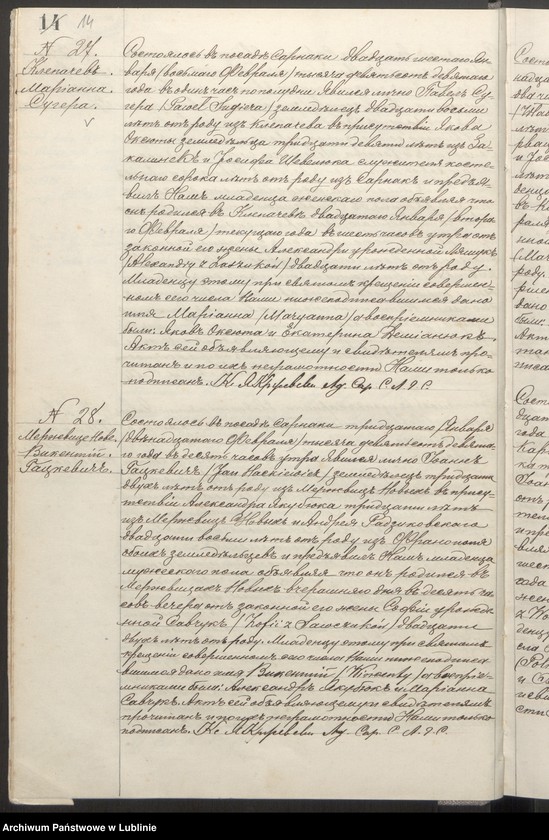 14 14
N 27.
Клепачевъ.
Маріанна
Сугера.
Состоялось въ посадѣ Сарнаки двадцать шестаго Ян-
варя /восьмаго Февраля/ тысяча девятьсотъ девятаго
года въ одинъ часъ пополудни. Явился лично Павелъ Су-
гера /Paweł Sugiera/ земледѣлецъ двадцати восьми
лѣтъ отъ роду изъ Клепачева въ присутствіи Якова
Оксюты земледѣльца тридцати девяти лѣтъ изъ
и Іосифа Шевелюка служителя косте-
льнаго сорока лѣтъ отъ роду изъ Сарнакъ и предъя-
вилъ Намъ младенца женскаго пола объявляя что
онъ родился въ Клепачевѣ двадцатаго Января /втора-
го Февраля/ текущаго года въ шесть часовъ утра отъ
законной его жены Александры урожденной
/Alexandry z / двадцати лѣтъ отъ роду.
Младенцу этому при святомъ крещеніи совершен-
номъ сего числа Нами нижеподписавшимся дано
имя Маріанна /Maryanna/ а воспріемниками
были: Яковъ Оксюта и Екатерина Демianюкъ.
Актъ сей объявляющему и свидѣтелямъ про-
читанъ и по ихъ неграмотности Нами только
подписанъ. Кс.
N 28.
Мержвице Нове.
Викентій
Гацкевичъ.
Состоялось въ посадѣ Сарнаки тридцатаго /Января
/двѣнадцатаго Февраля/ тысяча девятьсотъ девята-
го года въ десять часовъ утра. Явился лично Іоаннъ
Гацкевичъ /Jan Hackiewicz/ земледѣлецъ тридцати
двухъ лѣтъ отъ роду изъ Мержвицъ Новыхъ въ присут-
ствіи Александра Якубюка тридцати лѣтъ
изъ Мержвицъ Новыхъ и Андрея Гадзиковскаго
двадцати восьми лѣтъ отъ роду изъ Франополя
обоихъ земледѣльцевъ и предъявилъ Намъ младенца
мужескаго пола объявляя что онъ родился въ
Мержвицахъ Новыхъ вчерашняго дня въ десять ча-
совъ вечера отъ законной его жены Софіи урожде-
нной Савчукъ /Zofii z Sawczuków/ двадцати
двухъ лѣтъ отъ роду. Младенцу этому при святомъ
крещеніи совершенномъ сего числа Нами нижеподписа-
вшимся дано имя Викентій /Wincenty/ а воспріе-
мниками были: Александръ Якубюкъ и Маріанна
Савчукъ. Актъ сей объявляющему и свидѣтелямъ
прочитанъ и по ихъ неграмотности Нами только
подписанъ. Кс.
Archiwum Państwowe w Lublinie